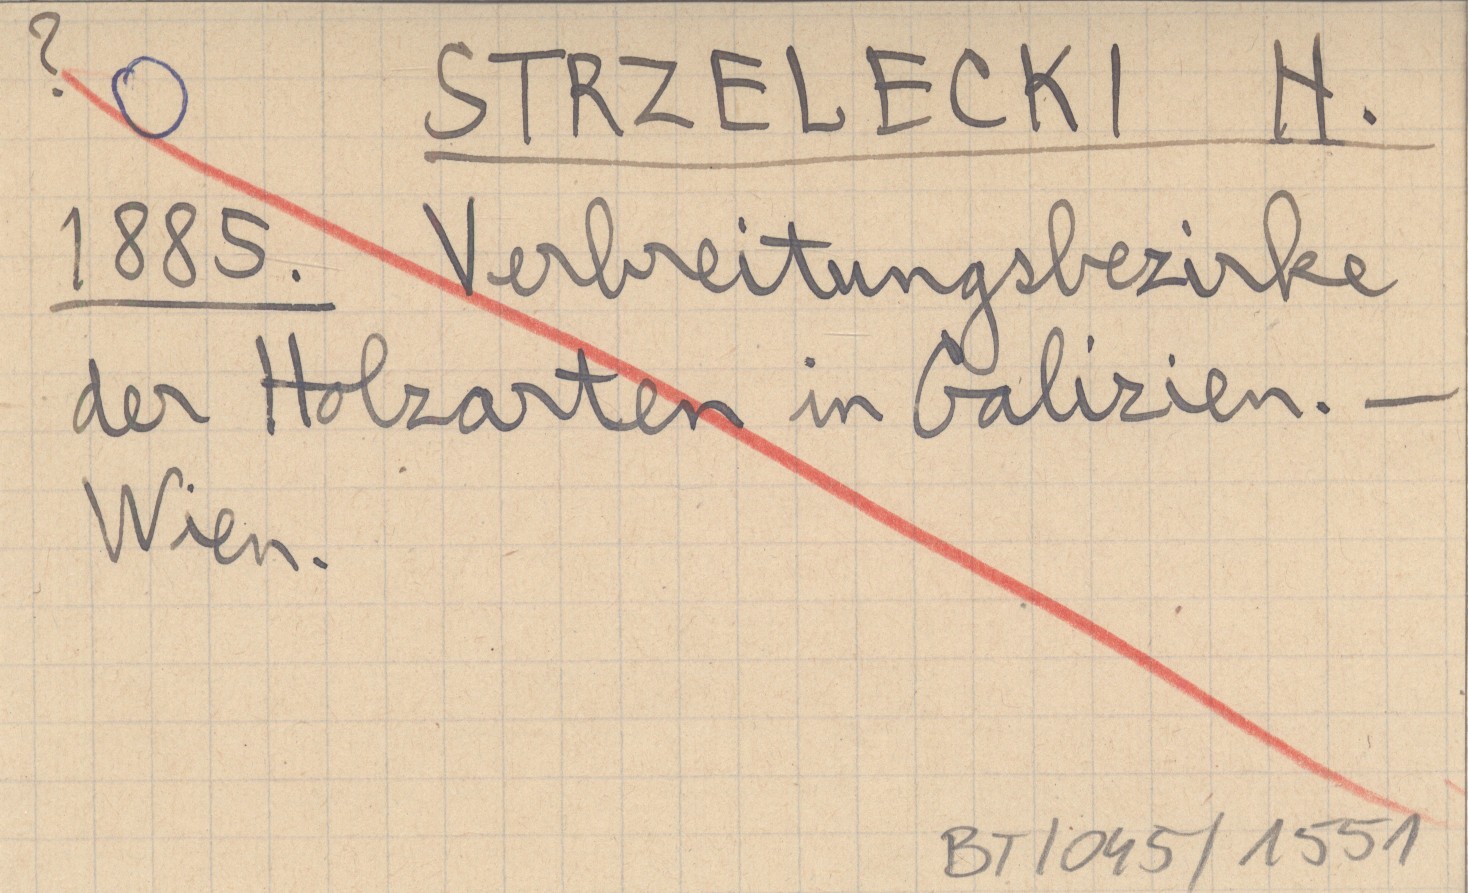 ? O STRZELECKI H.
1885. Verbreitungsbezirke
der Holzarten in Galizien. —
Wien.
BT/045/1551